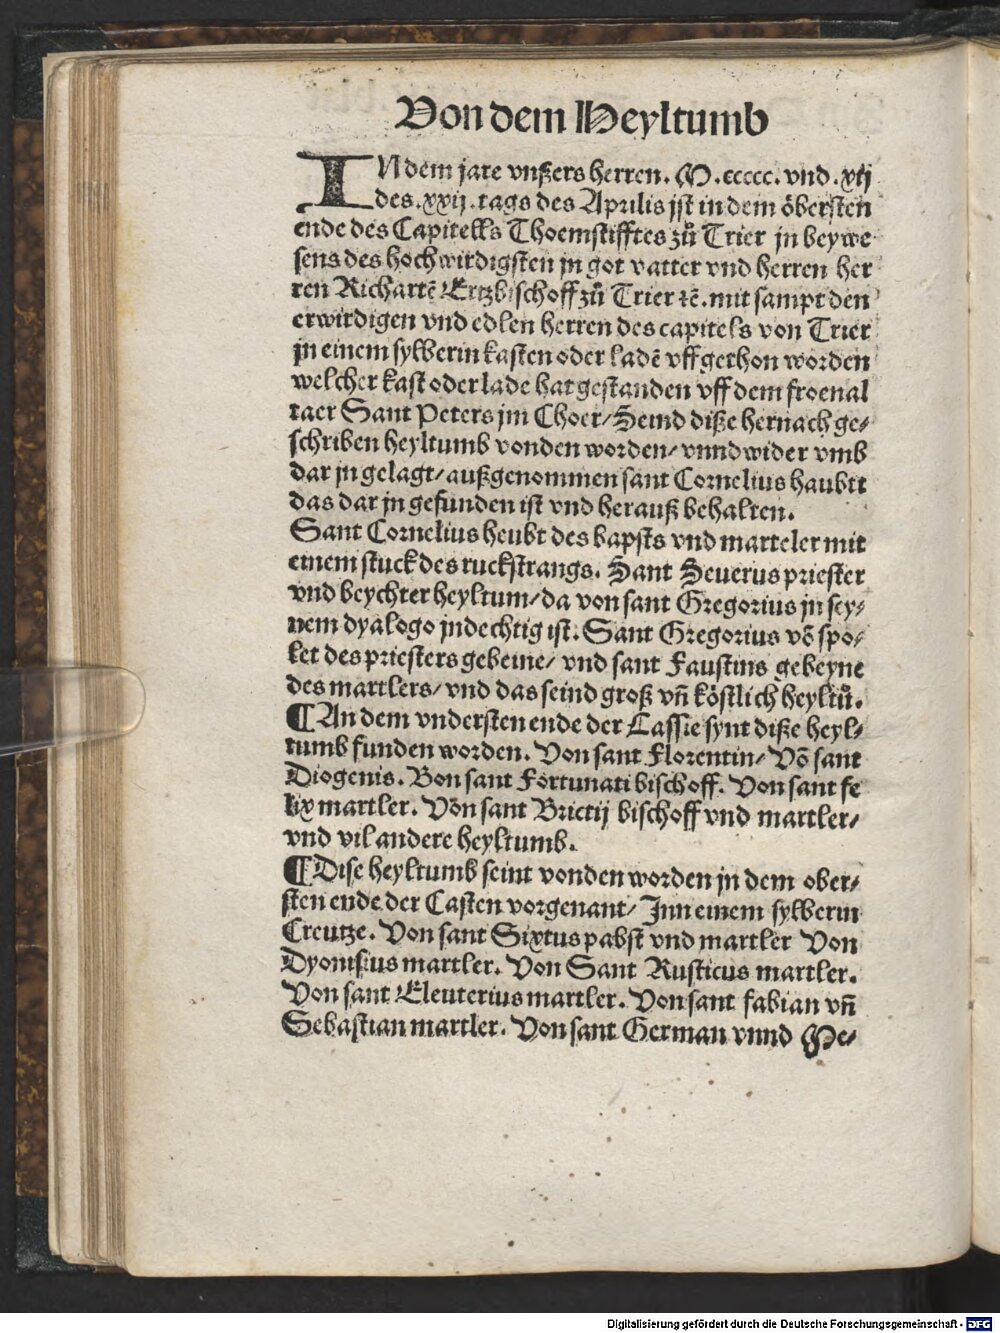 Von dem Heyltumb
IN dem jare vnßers herren. M.ccccc. vnd .xij
des .xxij. tags des Aprilis jst in dem öbersten
ende des Capitells Thoemstifftes zů Trier jn beywe
sens des hochwirdigsten jn got vatter vnd herren her
ren Richartē Ertzbischoff zů Trier ꝛē. mit sampt den
erwirdigen vnd edlen herren des capitels von Trier
jn einem sylberin kasten oder ladē vffgethon worden
welcher kast oder lade hat gestanden vff dem froenal
taer Sant Peters jm Choer/ Seind diße hernach ge/
schriben heyltumb vonden worden/ vnnd wider vmb
dar jn gelagt/ außgenommen sant Cornelius haubtt
das dar jn gefunden ist vnd herauß behalten.
Sant Cornelius heubt des bapsts vnd marteler mit
einem stuck des ruckstrangs. Sant Seuerus priester
vnd beychter heyltum/ da von sant Gregorius jn sey/
nem dyalogo jndechtig ist. Sant Gregorius võ spo/
let des priesters gebeine/ vnd sant Faustins gebeyne
des martlers/ vnd das seind groß vñ köstlich heyltů.
¶ An dem vndersten ende der Cassie synt diße heyl/
tumb funden worden. Von sant Florentin/ Võ sant
Diogenis. Bon sant Fortunati bischoff. Von sant fe
lix martler. Von sant Brictij bischoff vnd martler/
vnd vil andere heyltumb.
¶ Dise heyltumb seint vonden worden jn dem ober/
sten ende der Casten vorgenant/ Jnn einem sylberin
Creutze. Von sant Sixtus pabst vnd martler Von
Dyonisius martler. Von Sant Rusticus martler.
Von sant Eleuterius martler. Von sant fabian vñ
Sebastian martler. Von sant German vnnd Me/
Digitalisierung gefördert durch die Deutsche Forschungsgemeinschaft - DFG